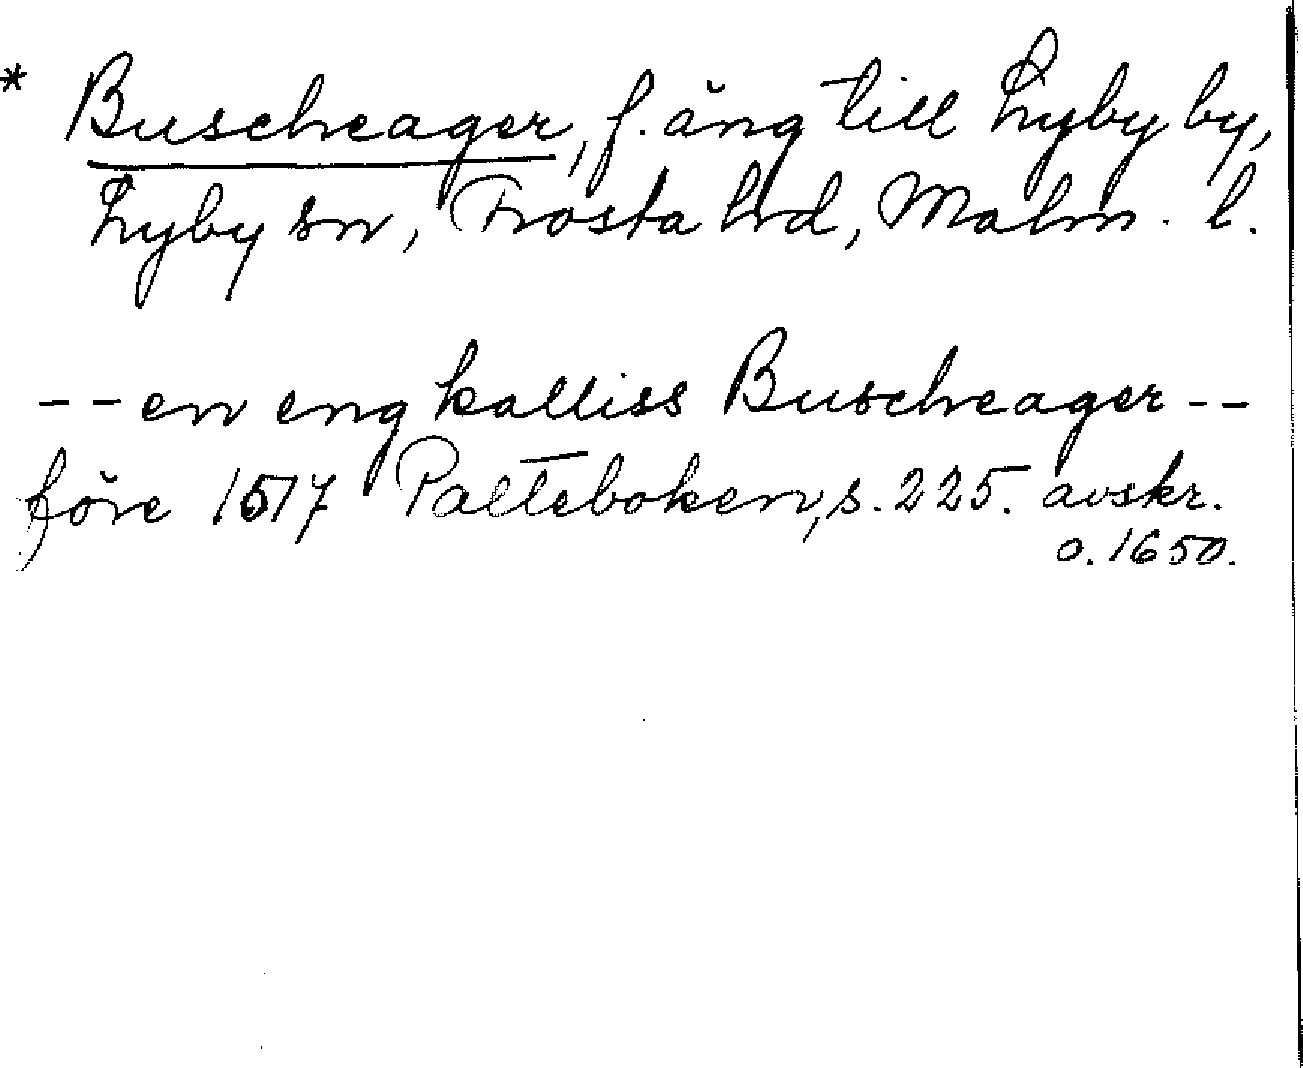 * Buscheager, f. äng till Lyby by,
Lyby sn, Frosta hd, Malm. l.
-- en eng kalliss Buscheager --
före 1517 Palteboken, s. 225. avskr.
o. 1650.